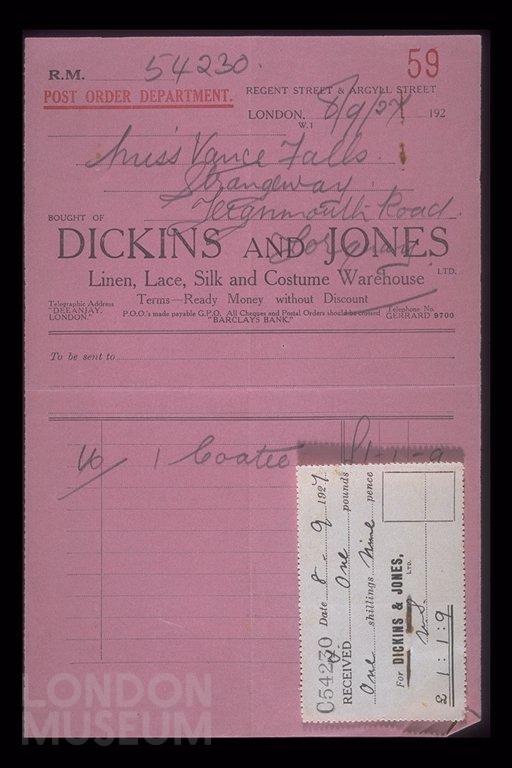 59
R.M. 54230.
POST ORDER DEPARTMENT.
REGENT STREET & ARGYLL STREET
LONDON, 8/9/27 192
W.1
Miss Vance Falls.
Strangeway.
Teignmouth Road.
Torquay
BOUGHT OF
DICKINS AND JONES
LTD.
Linen, Lace, Silk and Costume Warehouse
Terms—Ready Money without Discount
Telegraphic Address
"DEEANJAY, LONDON."
P.O.O.'s made payable G.P.O. All Cheques and Postal Orders should be crossed
"BARCLAYS BANK."
Telephone No.
GERRARD 9700
To be sent to
1 Coatee £1-1-9
C54230 Date 8 - 9 1927
RECEIVED One pounds
One shillings Nine pence
For DICKINS & JONES,
LTD.
£ 1 : 1 : 9
LONDON
MUSEUM